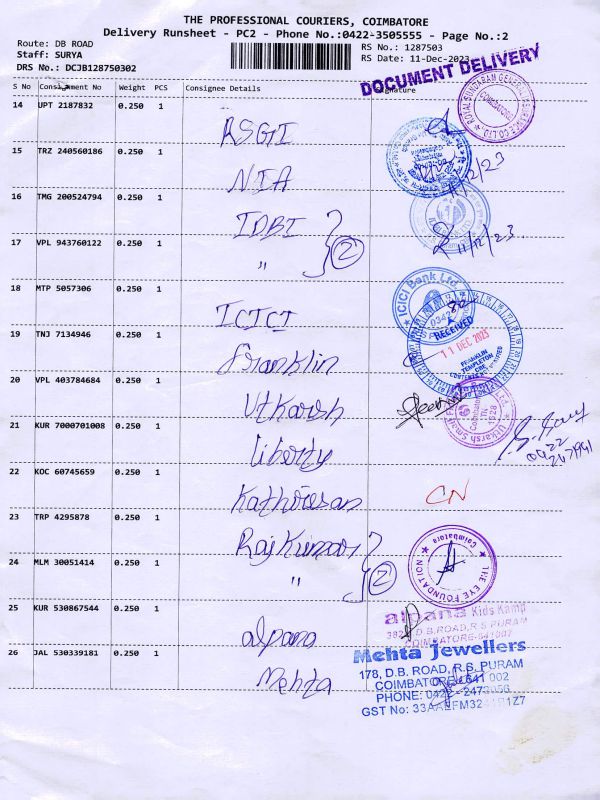 THE PROFESSIONAL COURIERS, COIMBATORE
Delivery Runsheet - PC2 - Phone No.:0422-3505555 - Page No.:2
Route: DB ROAD
Staff: SURYA
DRS No.: DCJB128750302
RS No.: 1287503
RS Date: 11-Dec-2023
DOCUMENT DELIVERY
S No Consignment No Weight PCS Consignee Details Signature
14 UPT 2187832 0.250 1
RSGI
15 TRZ 240560186 0.250 1
NIA
16 TMG 200524794 0.250 1
IDBI
17 VPL 943760122 0.250 1
" 2
11/12/23
18 MTP 5057306 0.250 1
ICICI
ICICI Bank Ltd.
RECEIVED
11 DEC 2023
19 TNJ 7134946 0.250 1
Franklin
FRANKLIN
TEMPLETON
20 VPL 403784684 0.250 1
Utkarsh
21 KUR 7000701008 0.250 1
liberty
22 KOC 60745659 0.250 1
Kathiresan
CN
23 TRP 4295878 0.250 1
Rajkumar
24 MLM 30051414 0.250 1
" 2
THE EYE FOUNDATION
Coimbatore
25 KUR 530867544 0.250 1
alpana
alpana Kids Kamp
D.B.ROAD, R.S PURAM
COIMBATORE-641002
26 JAL 530339181 0.250 1
Mehta
Mehta Jewellers
178, D.B. ROAD, R.S. PURAM
COIMBATORE - 641 002
PHONE: 0422 -
GST No: